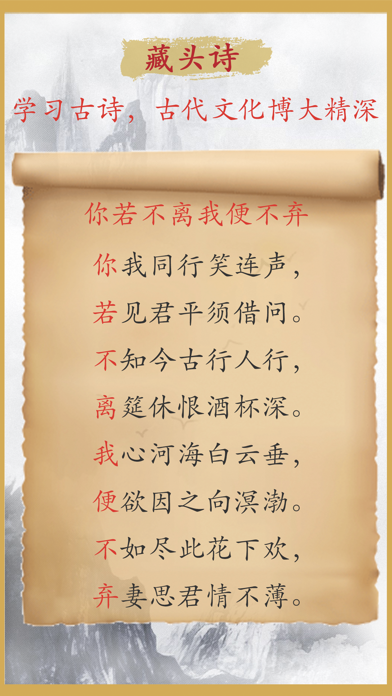 藏头诗
学习古诗，古代文化博大精深
你若不离我便不弃
你我同行笑连声，
若见君平须借问。
不知今古行人行，
离筵休恨酒杯深。
我心河海白云垂，
便欲因之向溟渤。
不如尽此花下欢，
弃妻思君情不薄。